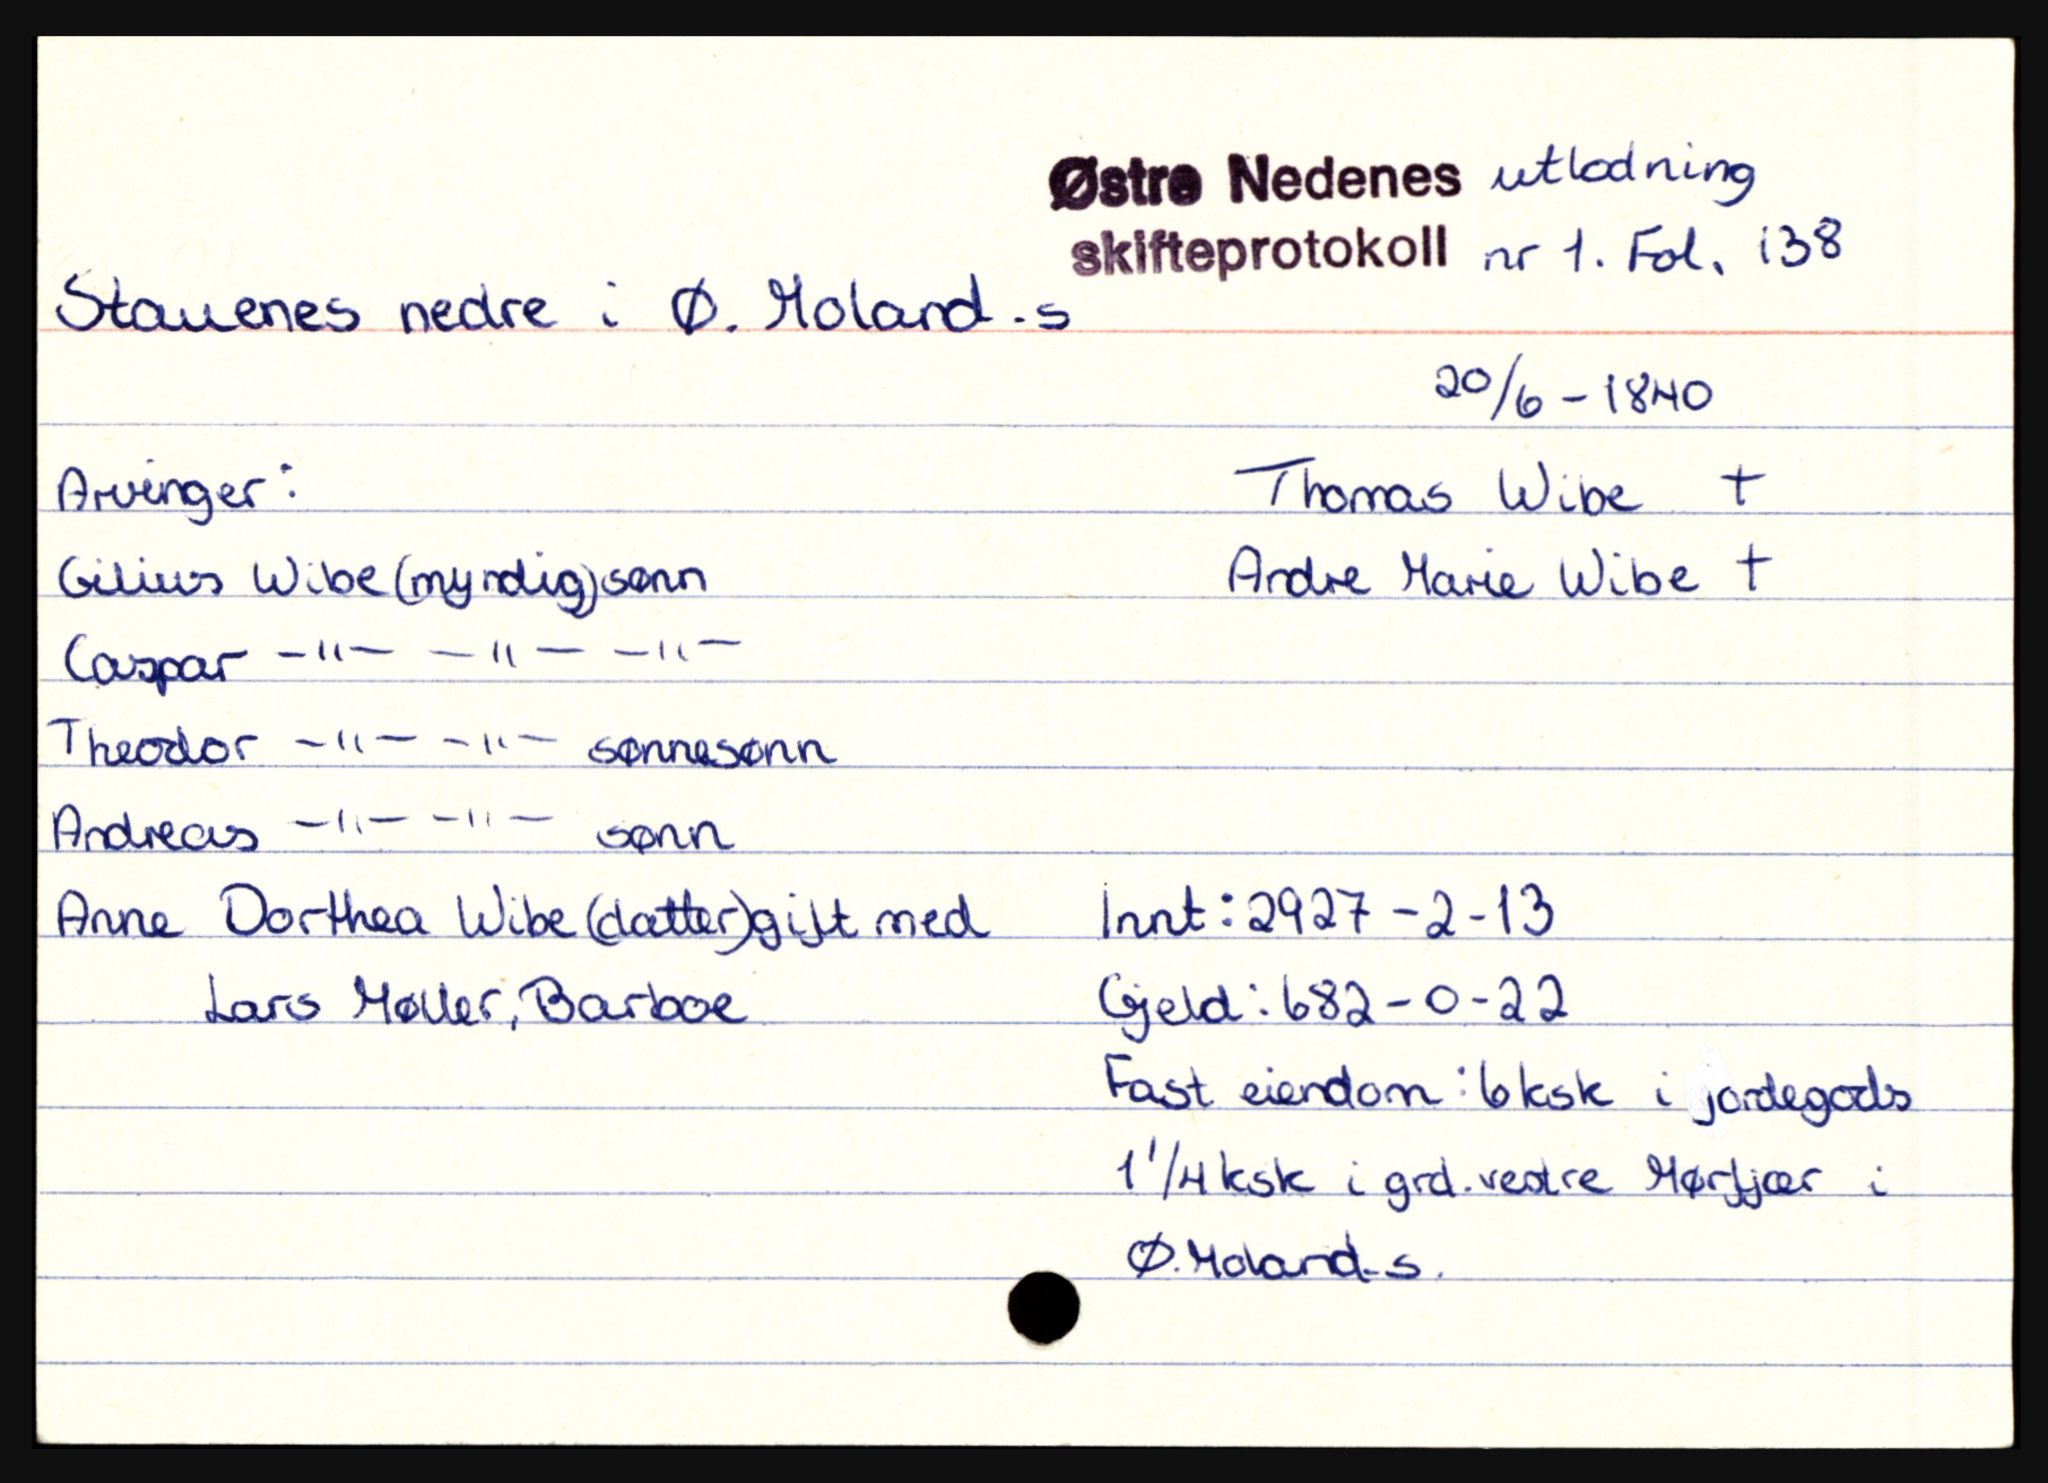 Østre Nedenes utlodning
skifteprotokoll nr 1. Fol. 138
Stauenes nedre i Ø. Moland.s
20/6 - 1840
Arvinger: Thomas Wibe +
Gilius Wibe (myndig) sønn Andre Marie Wibe +
Caspar -"- -"- -"-
Theodor -"- -"- sønnesønn
Andreas -"- -"- sønn
Anne Dorthea Wibe (datter) gift med Innt: 2927-2-13
Lars Møller, Barboe Gjeld: 682-0-22
Fast eiendom: 6 ksk i jordegods
1 1/4 ksk i grd. vestre Mørfjær i
Ø. Moland-s.